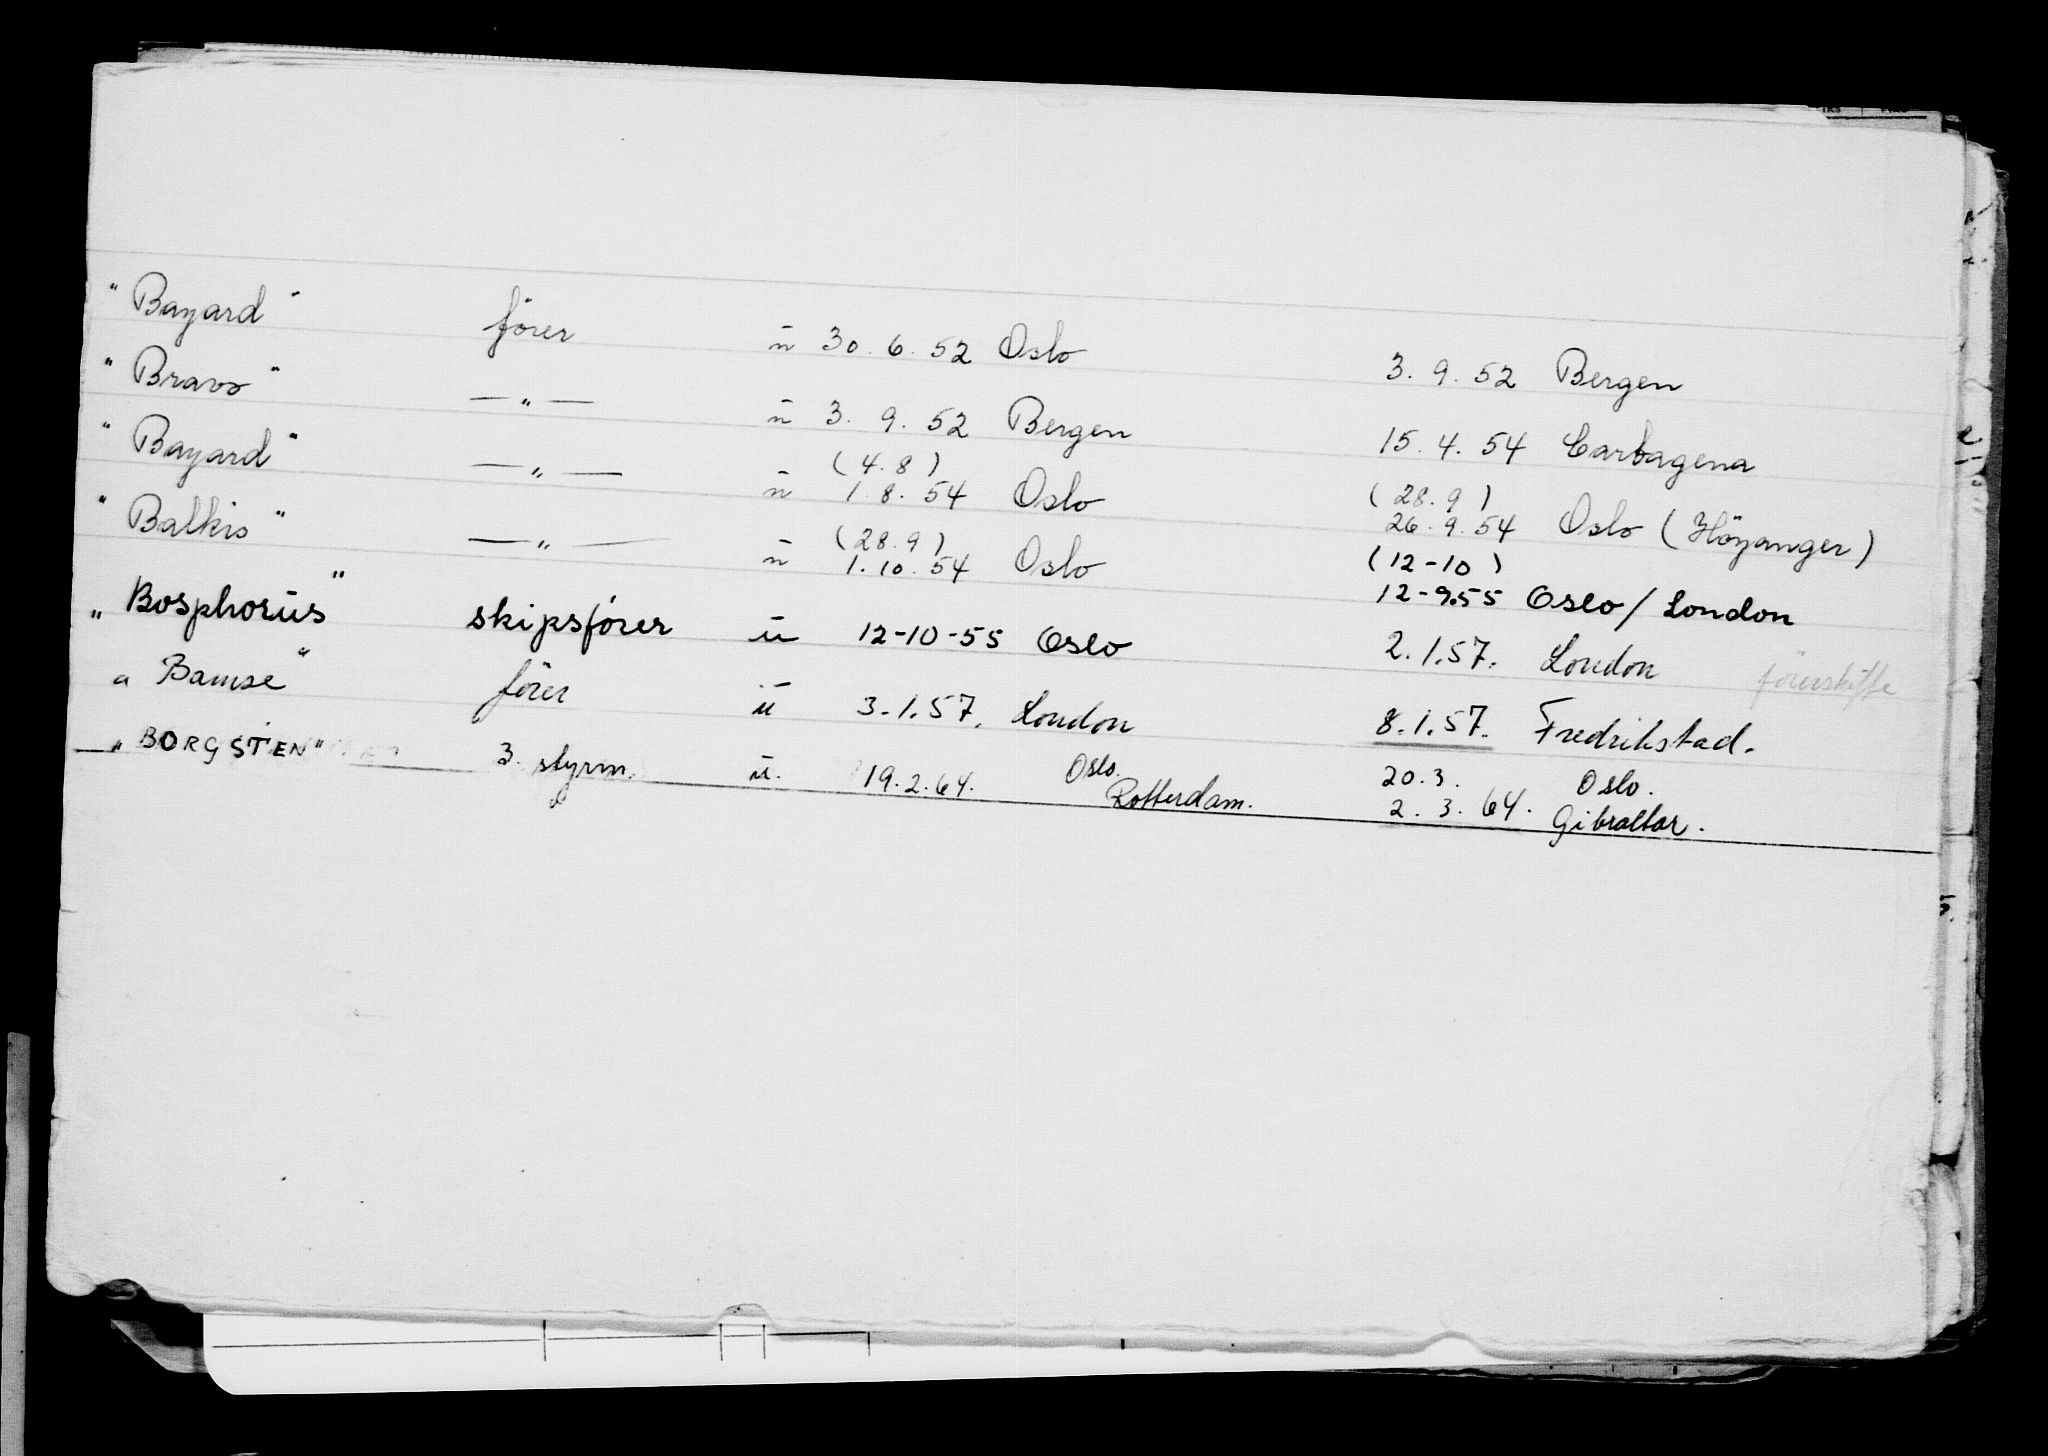 "Bayard" förer ü 30.6.52 Oslo 3.9.52 Bergen
"Bravo" —"— ü 3.9.52 Bergen 15.4.54 Cartagena
(4.8) (28.9)
"Bayard" —"— ü 1.8.54 Oslo 26.9.54 Oslo (Höyanger)
(28.9) (12-10)
"Balkis" —"— ü 1.10.54 Oslo 12-9.55 Oslo / London
"Bosphorus" skipsfører ü 12-10-55 Oslo 2.1.57. London förerskifte
"Bamse" förer ü 3.1.57. London 8.1.57. Fredrikstad.
Oslo. 20.3. Oslo.
"BORGSTEN" 3. styrm. ü. 19.2.64. Rotterdam. 2.3.64. Gibraltar.